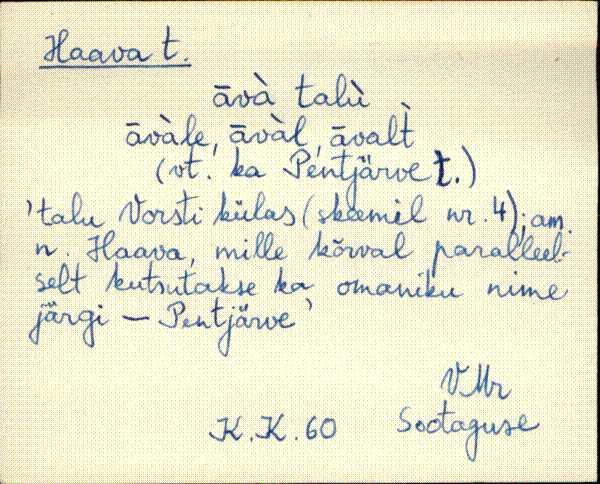 Haava t.
āvà talù
āvàle, āvàl, āvalt̀
(vt. ka Pentjärve t.)
'talu Vorsti külas (skeemil nr. 4); am.
n. Haava, mille kõrval paralleel-
selt kutsutakse ka omaniku nime
järgi — Pentjärve'
VMr
K.K. 60 Sootaguse